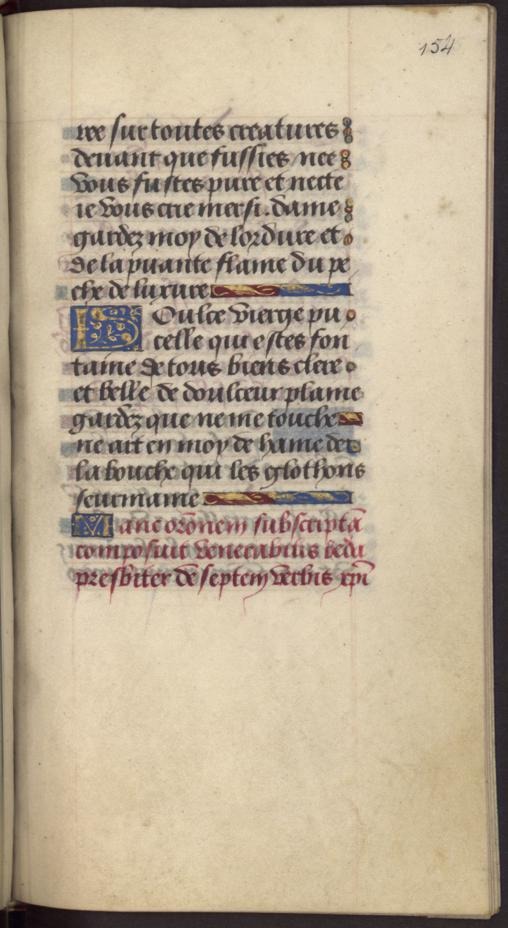 154
ree sur toutes creatures
deuant que fussies nee
Vous fustes pure et necte
ie Vous crie mersi. dame
gardez moy de lordure et
de la puante flame du pe
che de luxure
Doulce Vierge pu
celle qui estes fon
taine de tous biens clere
et belle de doulceur plaine
gardez que ne me touche
ne art en moy de hame de
la bouche qui les glothons
seurmaine
Hanc orõnem subscripta
composuit Venerabilis beda
presbiter de septem Verbis xpi